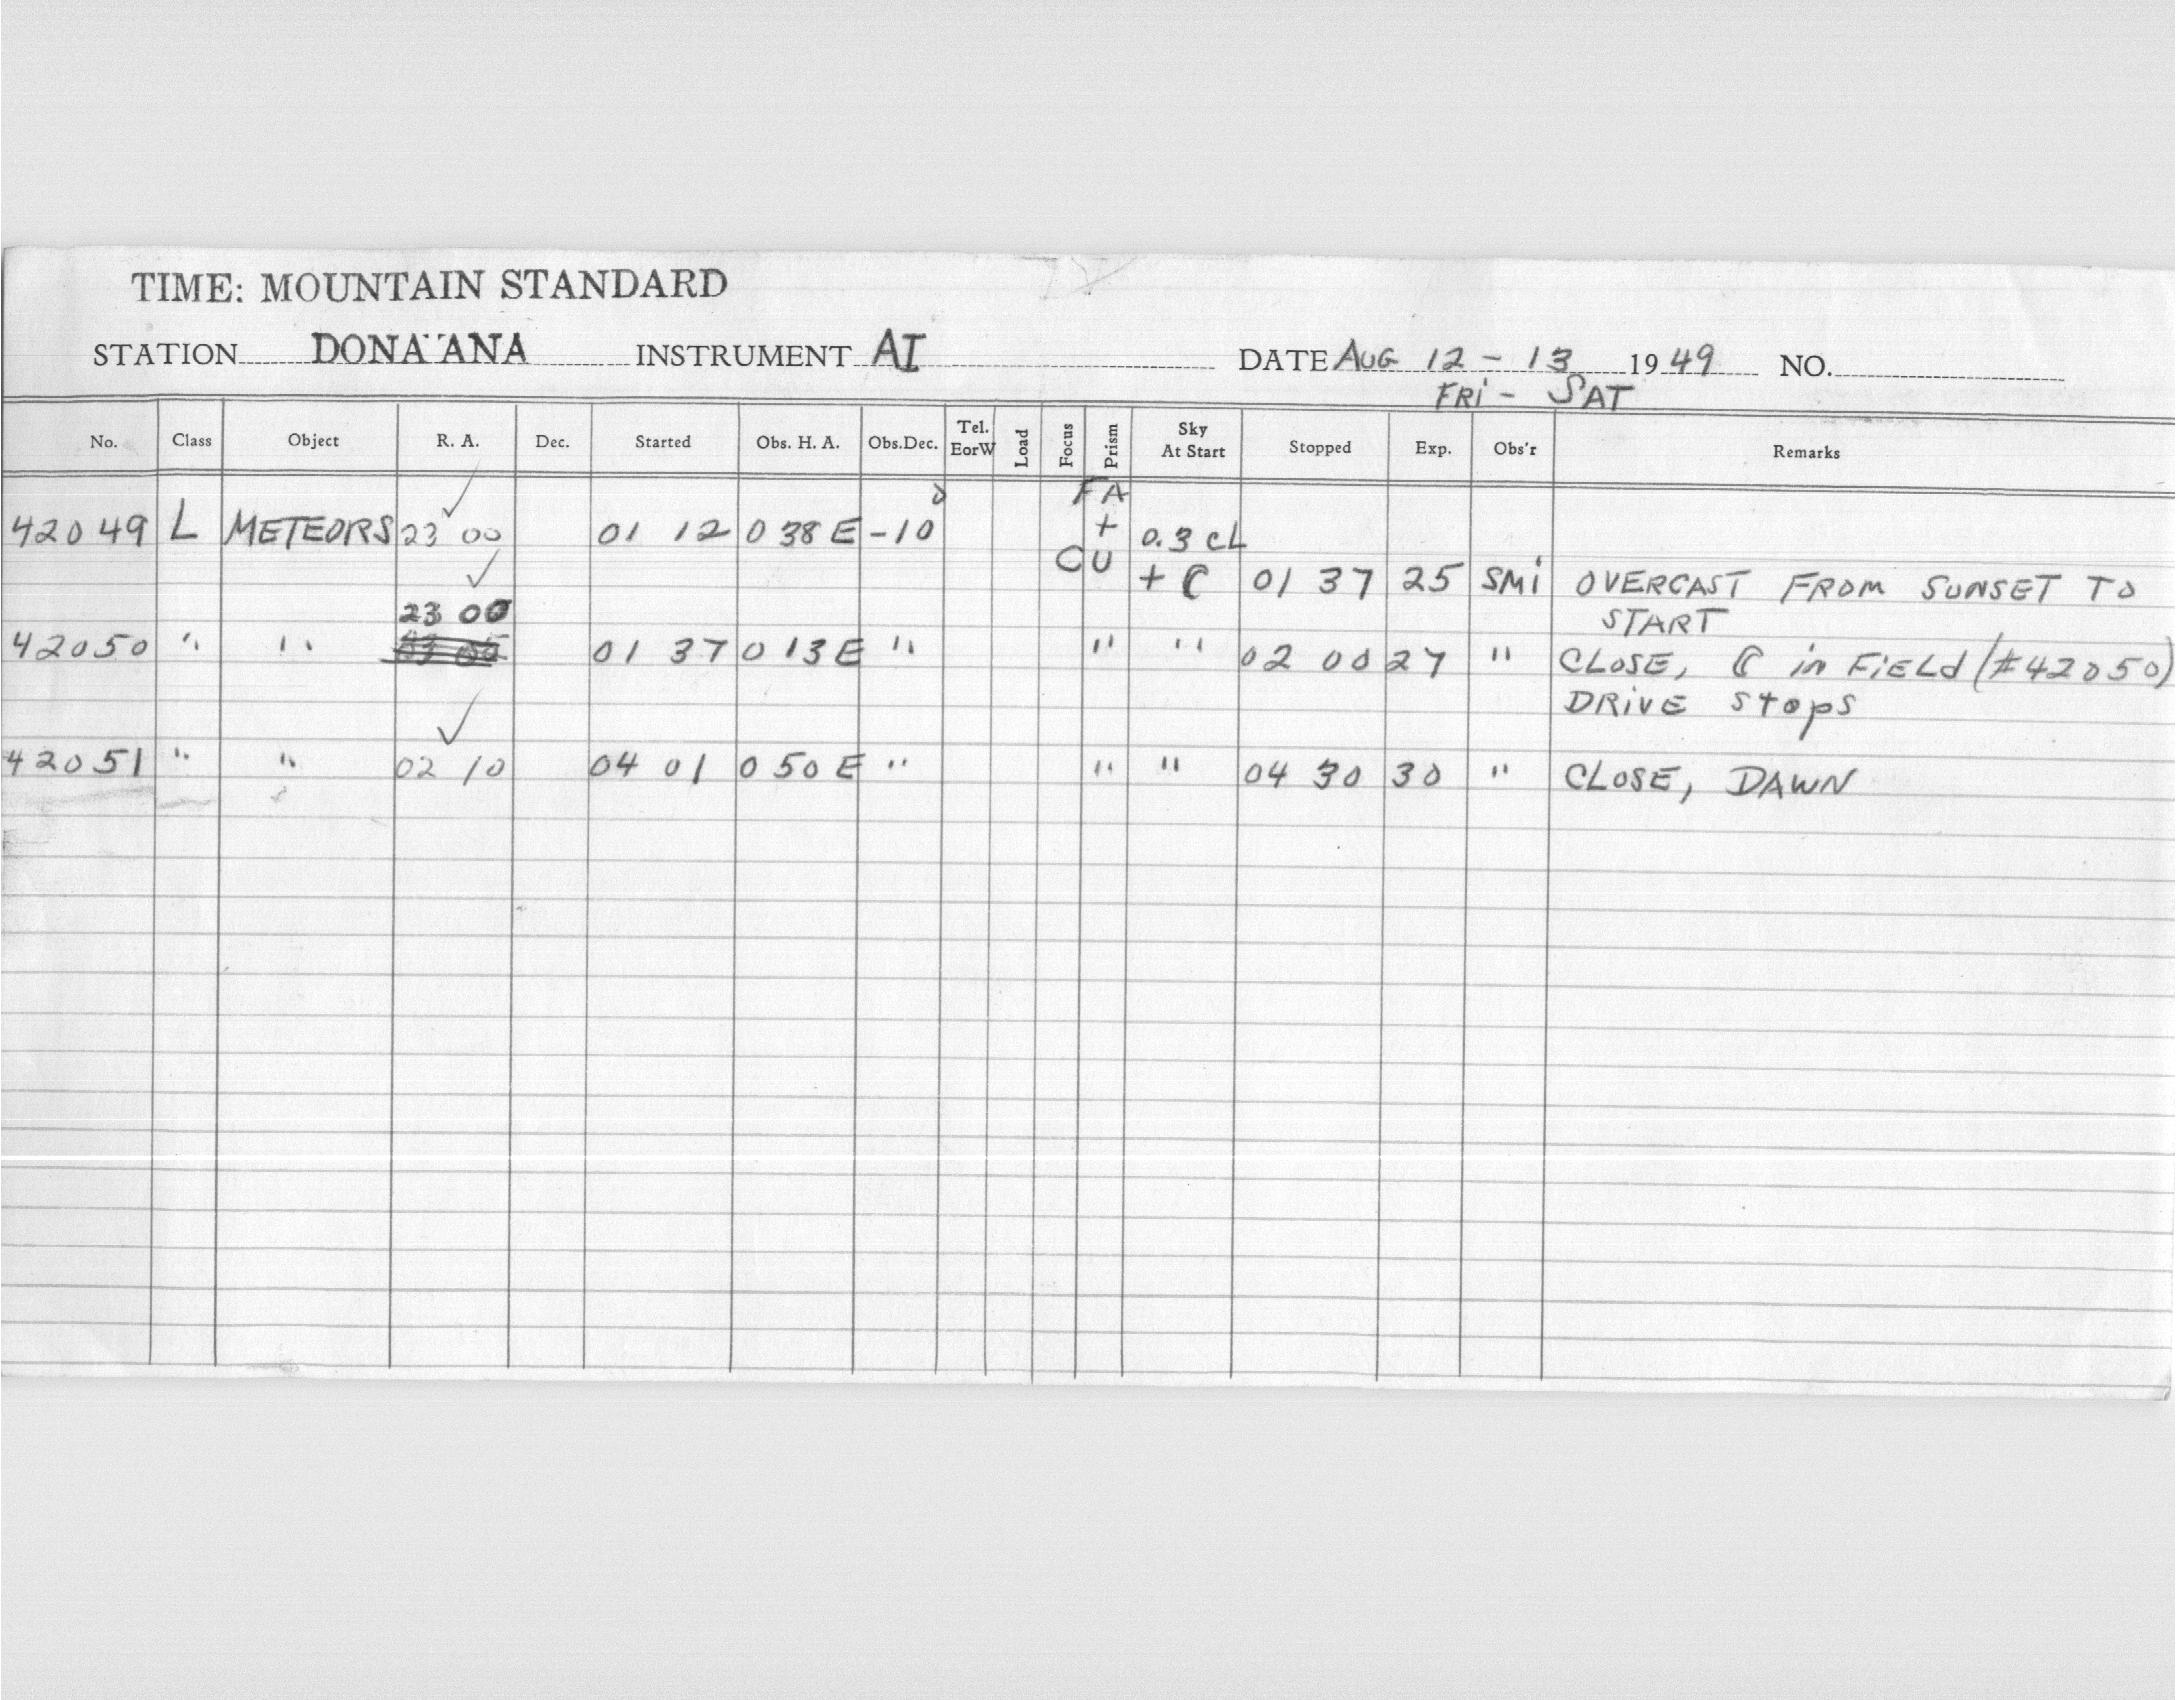 TIME: MOUNTAIN STANDARD
STATION DONA ANA INSTRUMENT AI DATE AUG 12 - 13 1949 NO.
FRI - SAT
No. Class Object R. A. Dec. Started Obs. H. A. Obs.Dec. Tel. EorW Load Focus Prism Sky At Start Stopped Exp. Obs'r Remarks
FA
42049 L METEORS 23 00 01 12 0 38 E -10° + 0.3 CL
CU + ☾ 01 37 25 SMi OVERCAST FROM SUNSET TO
23 00 START
42050 " " 01 37 0 13 E " " " 02 00 27 " CLOSE, ☾ in FiELd (#42050)
DRiVE Stops
42051 " " 02 10 04 01 0 50 E " " " 04 30 30 " CLOSE, DAWN